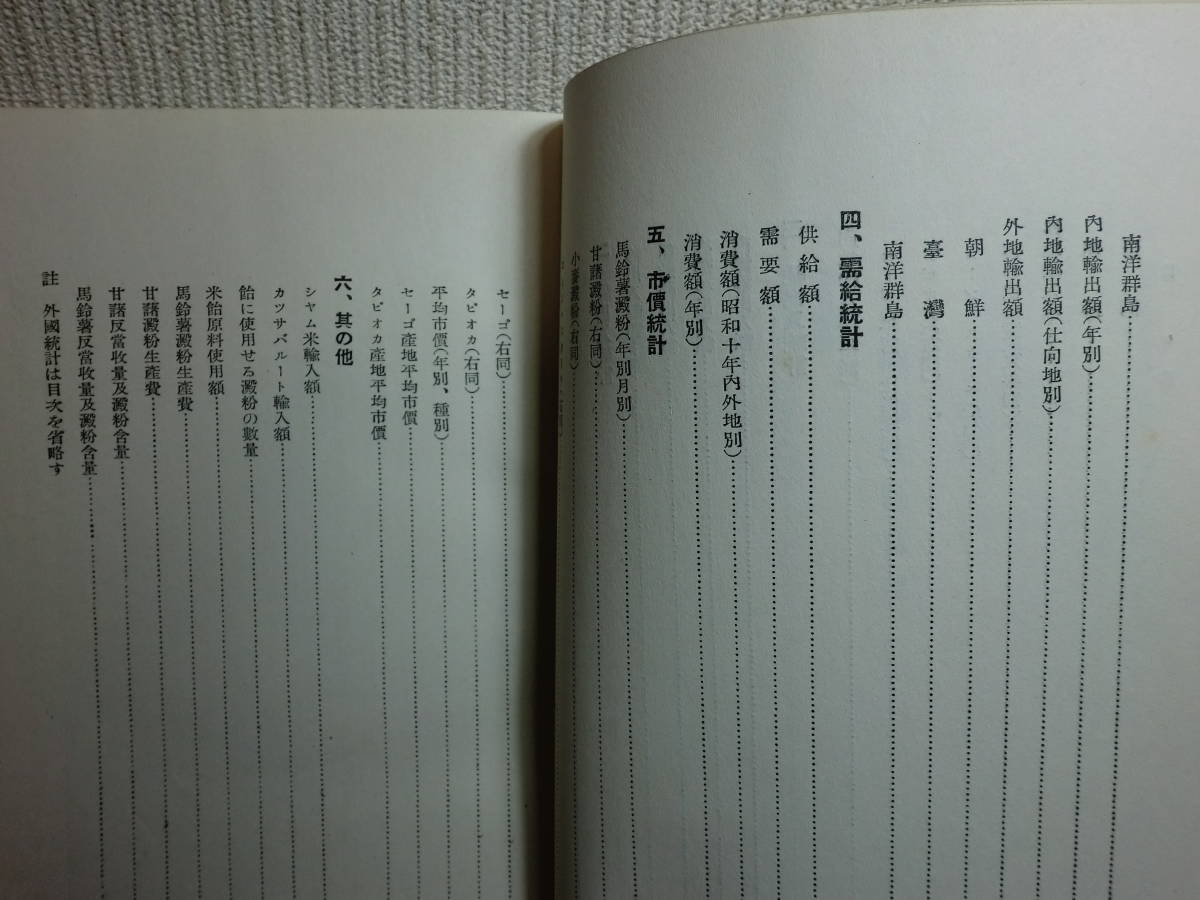 南洋群島
內地輸出額(年別)
內地輸出額(仕向地別)
外地輸出額
朝鮮
臺灣
南洋群島
四、需給統計
供給額
需要額
消費額(昭和十年內外地別)
消費額(年別)
五、市價統計
馬鈴薯澱粉(年別月別)
甘藷澱粉(右同)
小麥澱粉(右同)
セーゴ(右同)
タピオカ(右同)
平均市價(年別、種別)
セーゴ產地平均市價
タピオカ產地平均市價
六、其の他
シャム米輸入額
カツサバルート輸入額
飴に使用せる澱粉の數量
米飴原料使用額
馬鈴薯澱粉生產費
甘藷澱粉生產費
甘藷反當收量及澱粉含量
馬鈴薯反當收量及澱粉含量
註 外國統計は目次を省略す